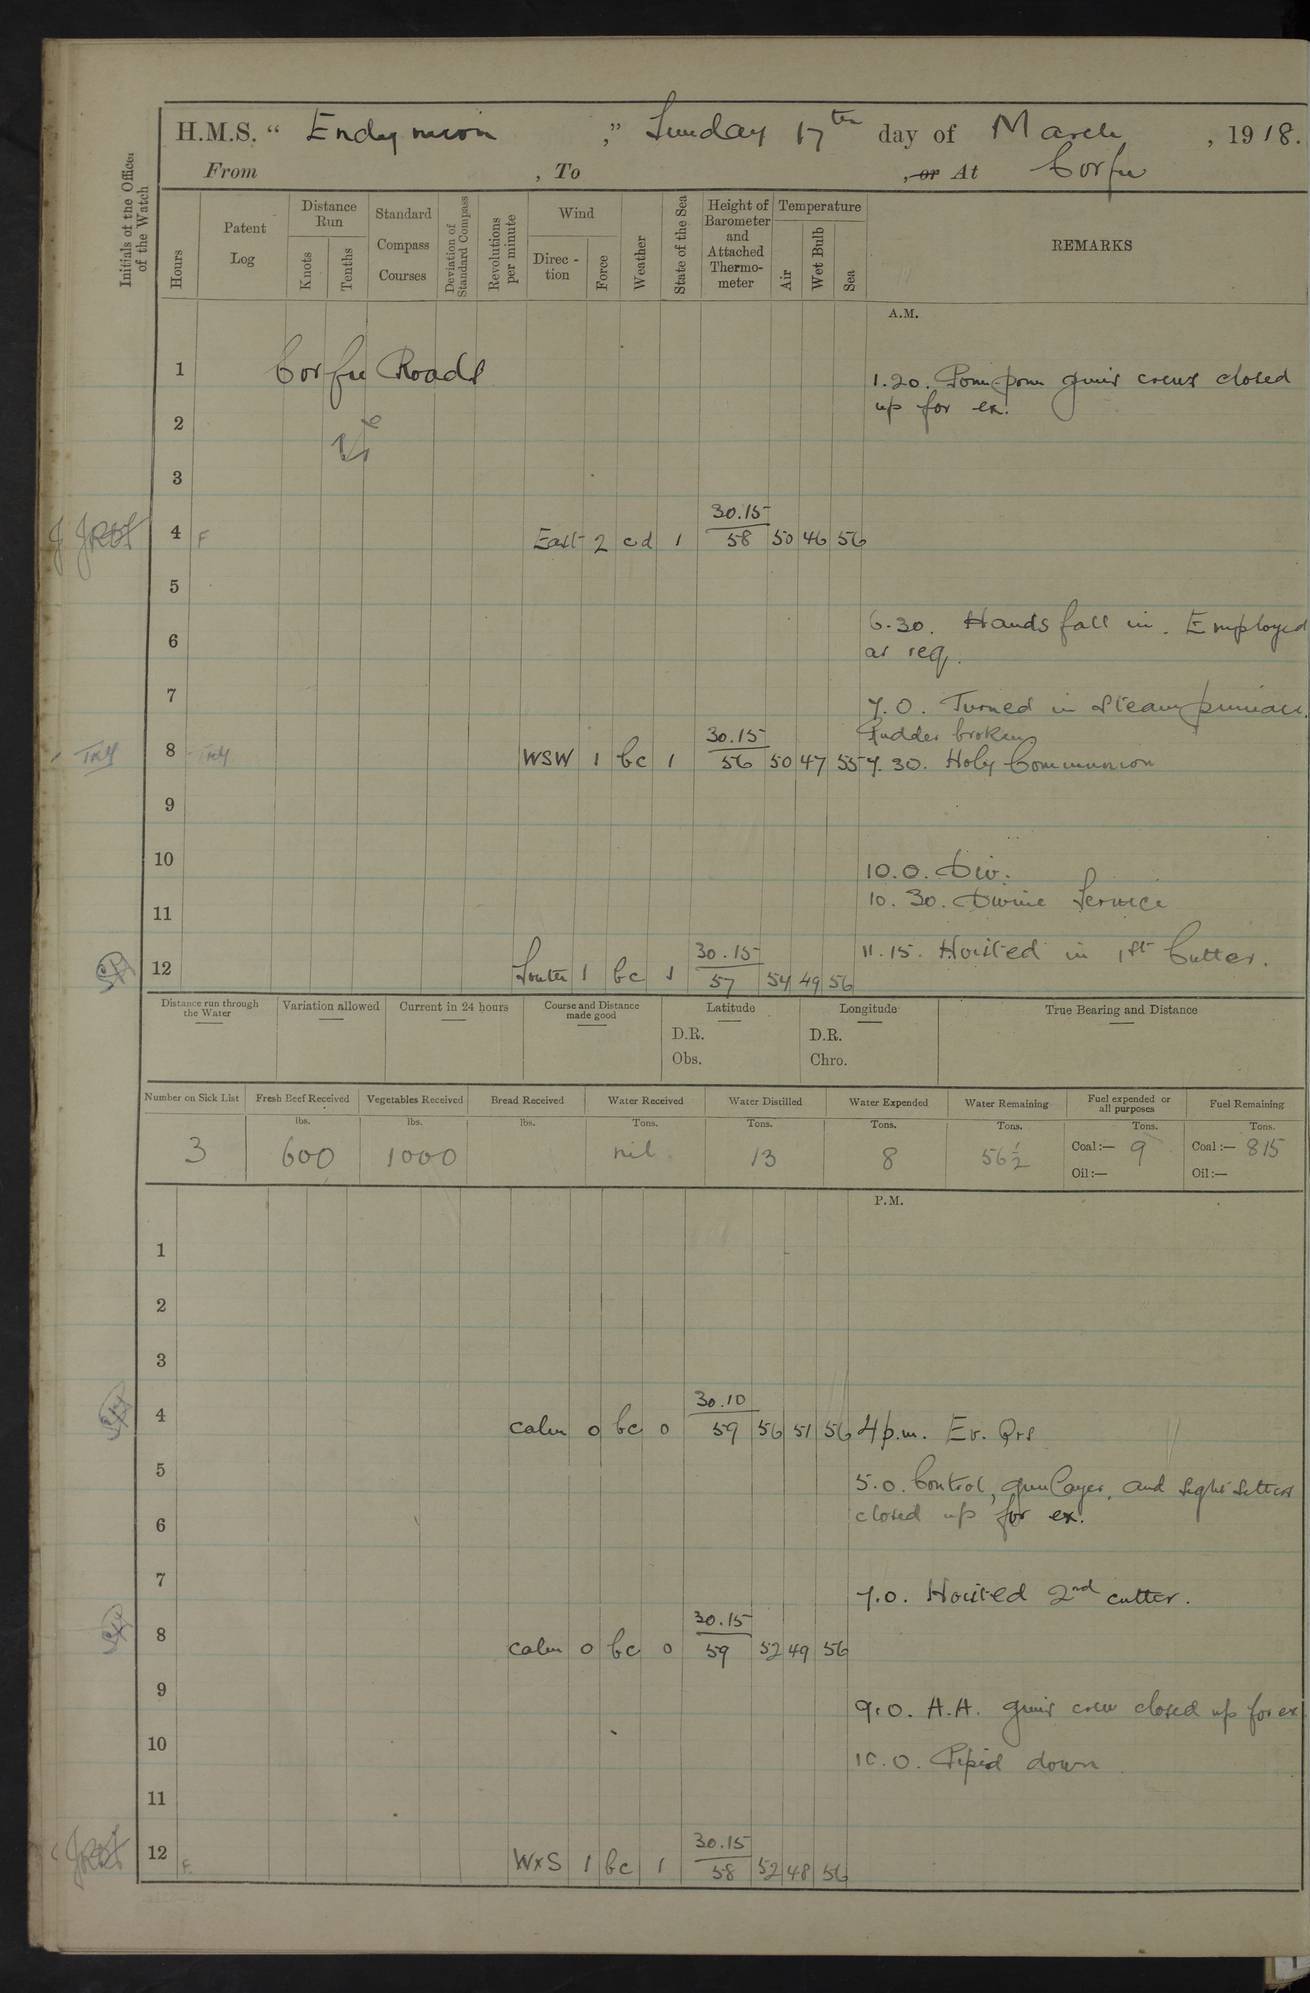 H.M.S. “ Endymion ,” Sunday 17th day of March , 1918.
From , To , or At Corfu
Initials of the Officer of the Watch
Hours
Patent Log
Distance Run
Knots
Tenths
Standard Compass Courses
Deviation of Standard Compass
Revolutions per minute
Wind
Direc-tion
Force
Weather
State of the Sea
Height of Barometer and Attached Thermo-meter
Temperature
Air
Wet Bulb
Sea
REMARKS
A.M.
1 Corfu Roads 1.20. Pom-pom guns crews closed
up for ex.
2
3
30.15
4 F East 2 cd 1 58 50 46 56
5
6.30. Hands fall in. Employed
6 as req.
7 7.0. Turned in Steam pinnace.
30.15 Rudder broken
8 WSW 1 bc 1 56 50 47 55 7.30. Holy Communion
9
10 10.0. Div.
10.30. Divine Service
11
30.15 11.15. Hoisted in 1st Cutter.
12 South 1 bc 1 57 54 49 56
Distance run through the Water
Variation allowed
Current in 24 hours
Course and Distance made good
Latitude
D.R.
Obs.
Longitude
D.R.
Chro.
True Bearing and Distance
Number on Sick List
Fresh Beef Received
Vegetables Received
Bread Received
Water Received
Water Distilled
Water Expended
Water Remaining
Fuel expended or all purposes
Fuel Remaining
lbs. lbs. lbs. Tons. Tons. Tons. Tons. Tons. Tons.
3 600 1000 nil 13 8 56½ Coal:— 9 Coal:— 815
Oil:— Oil:—
P.M.
1
2
3
30.10
4 calm 0 bc 0 59 56 51 56 4 p.m. Ev. Qrs
5 5.0. Control, gunlayer, and Sight Setters
closed up for ex.
6
7 7.0. Hoisted 2nd cutter.
30.15
8 calm 0 bc 0 59 52 49 56
9 9.0. A.A. guns crew closed up for ex
10 10.0. Piped down
11
30.15
12 F. WxS 1 bc 1 58 52 48 56